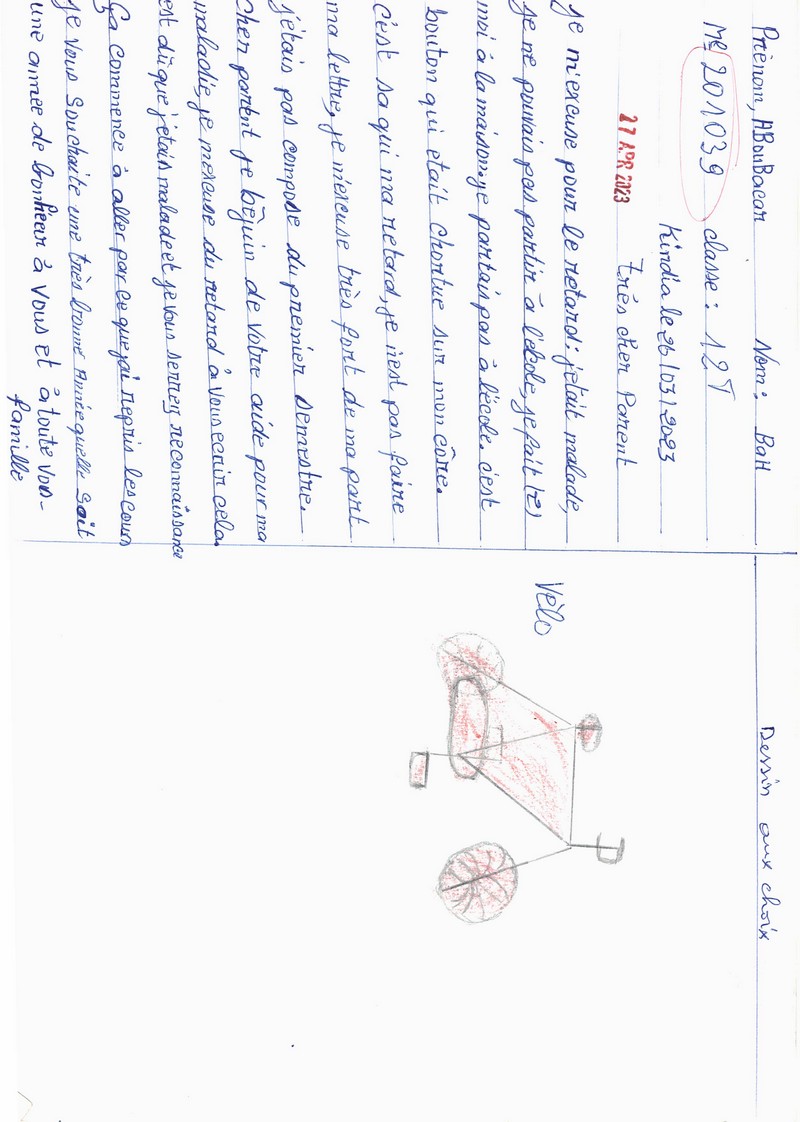 Prénom, ABouBacar Nom: BaH
Mle 201039 classe: 12T
Kindia le 26/03/2023
27 APR 2023
très cher Parent
je m'excuse pour le retard: j'etait malade,
je ne pouvais pas partir à l'école, je fait (2)
moi à la maison. je partais pas à l'école. c'est
bouton qui etait chortue sur mon côrie.
c'est sa qui ma retard, je n'est pas faire
ma lettre, je m'excuse très fort de ma part
j'étais pas compose du premier semestre.
cher parent je bèjuin de votre aide pour ma
maladie, je m'excuse du retard à vous ecrir cela.
est dû que j'etais malade et je vous serrey reconnaissance
Ça commence à aller par ce que j'ai repris les cours
je vous Souhaite une très bonne Année quelle soit
une année de bonheur à vous et à toute vo-
famille
Dessin aux choix
Vélo